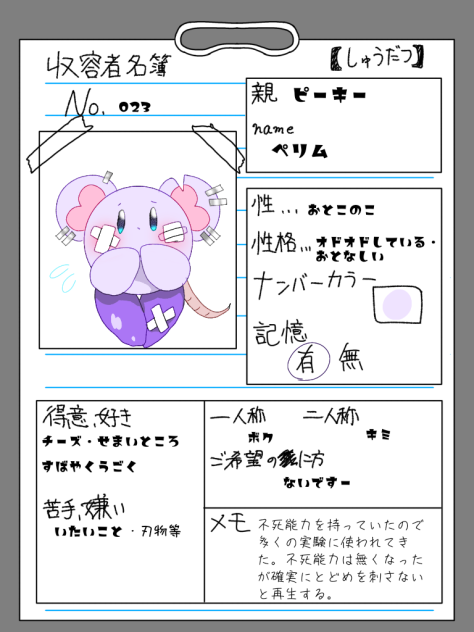 収容者名簿
【しゅうだつ】
No. 023
親 ピーキー
name
ペリム
性... おとこのこ
性格... オドオドしている・
おとなしい
ナンバーカラー
記憶
有 無
得意、好き
チーズ・せまいところ
すばやくうごく
苦手、嫌い
いたいこと・刃物等
一人称 二人称
ボク キミ
ご希望の に方
ないですー
メモ
不死能力を持っていたので
多くの実験に使われてき
た。不死能力は無くなった
が確実にとどめを刺さない
と再生する。